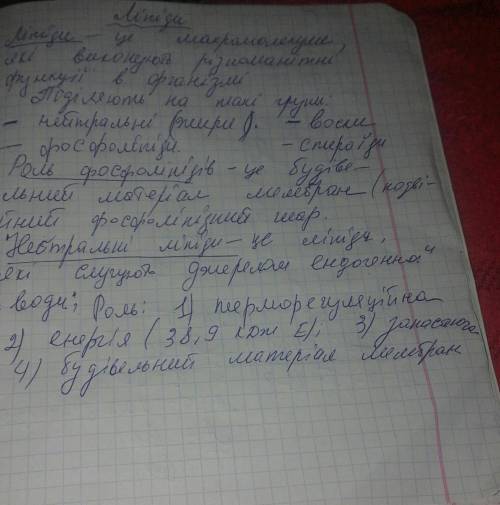 Ліпіди
Ліпіди – це макромолекули,
які виконують різноманітні
функції в організмі
Поділяють на такі групи:
– нейтральні (жири). – воски
– фосфоліпіди. – стероїди
Роль фосфоліпідів – це будіве-
льний матеріал мембран (подві-
йний фосфоліпідний шар.
Нейтральні ліпіди – це ліпіди,
які слугують джерелом ендогенної
води; Роль: 1) терморегуляційна
2) енергія (38,9 кДж Е); 3) запасаюча
4) будівельний матеріал мембран